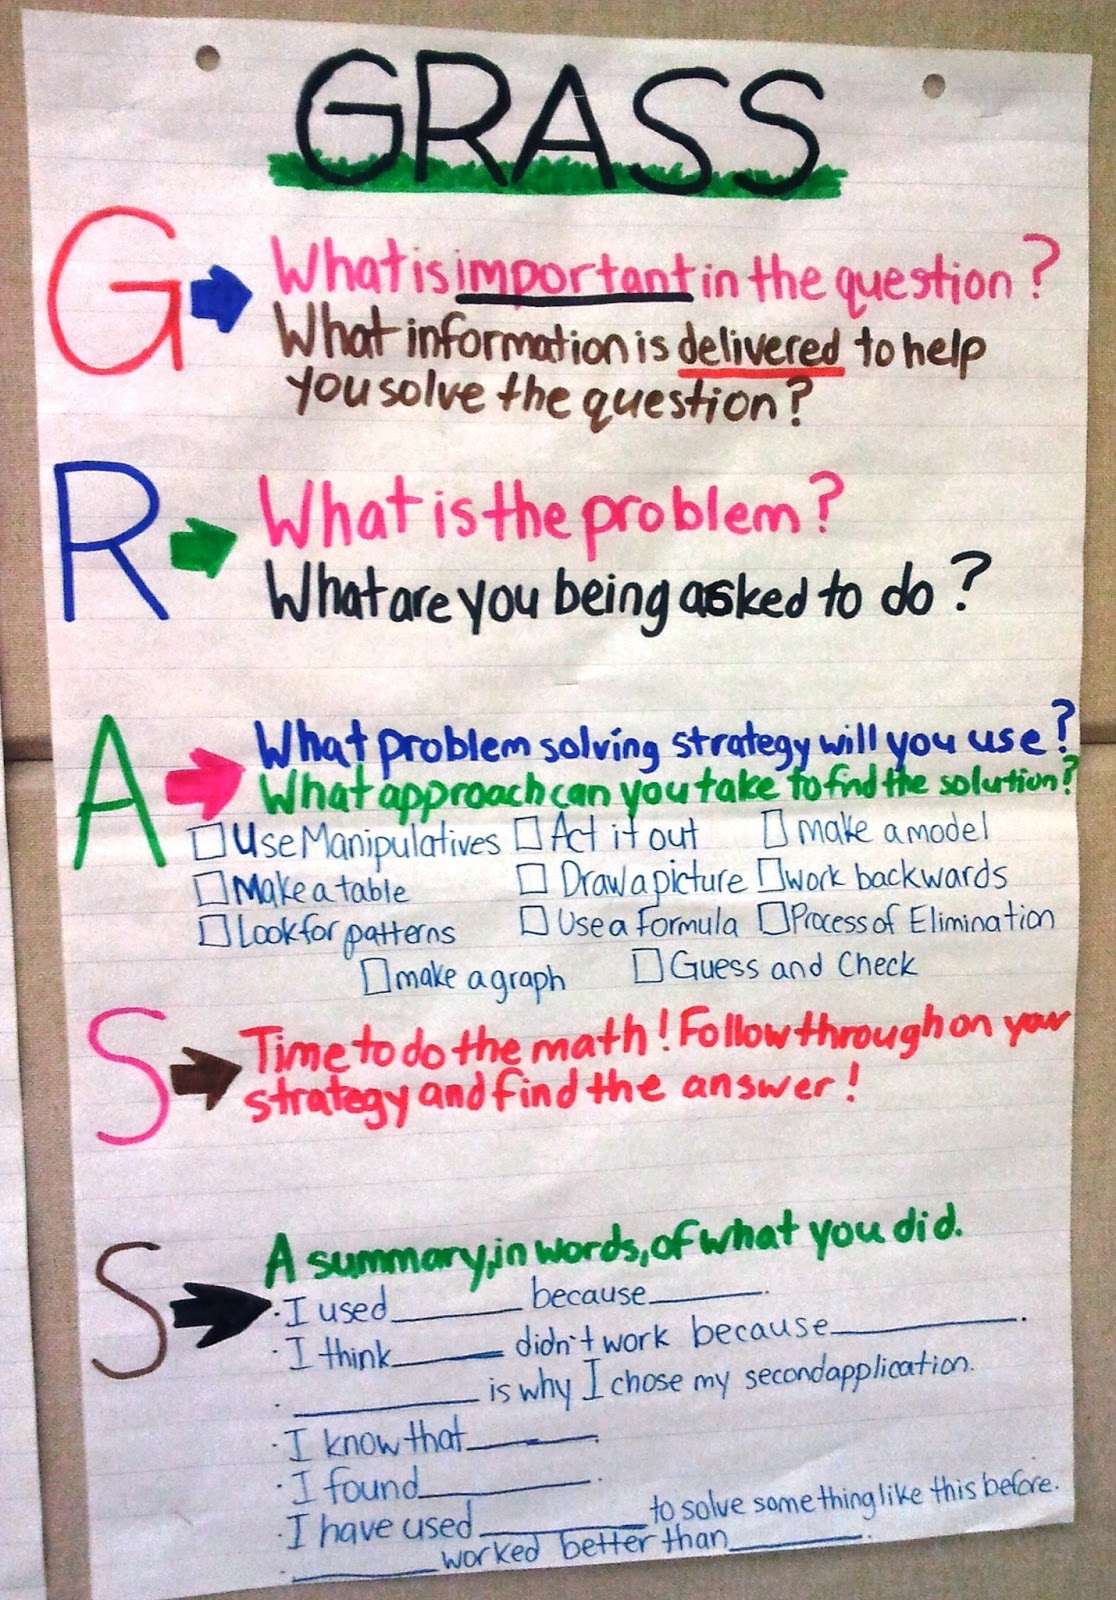 GRASS
G What is important in the question?
What information is delivered to help
you solve the question?
R What is the problem?
What are you being asked to do?
A What problem solving strategy will you use?
What approach can you take to find the solution?
Use Manipulatives Act it out make a model
Make a table Draw a picture work backwards
Look for patterns Use a Formula Process of Elimination
make a graph Guess and Check
S Time to do the math! Follow through on your
strategy and find the answer!
S A summary, in words, of what you did.
· I used ______ because ______.
· I think ______ didn't work because ______.
· ______ is why I chose my second application.
· I know that ______.
· I found ______.
· I have used ______ to solve something like this before.
· ______ worked better than ______.